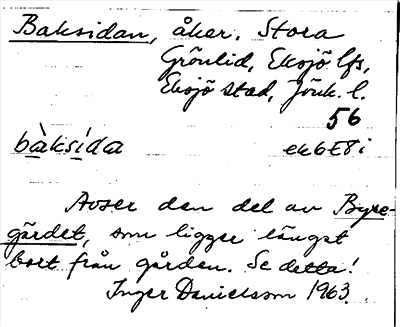 Baksidan, åker. Stora
Grönlid, Eksjö lfs,
Eksjö stad, Jönk. l.
56
bàksída ek6E8i
Avser den del av Byre-
gärdet, som ligger längst
bort från gården. Se detta!
Inger Danielsson 1963.